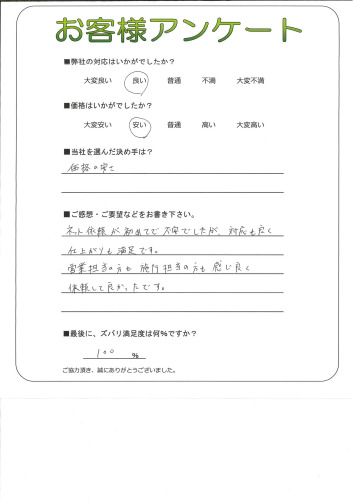 お客様アンケート
■弊社の対応はいかがでしたか？
大変良い 良い 普通 不満 大変不満
■価格はいかがでしたか？
大変安い 安い 普通 高い 大変高い
■当社を選んだ決め手は？
価格の安さ
■ご感想・ご要望などをお書き下さい。
ネット依頼が初めてで不安でしたが、対応も良く
仕上がりも満足です。
営業担当の方も施行担当の方も感じ良く
依頼して良かったです。
■最後に、ズバリ満足度は何%ですか？
100 %
ご協力頂き、誠にありがとうございました。